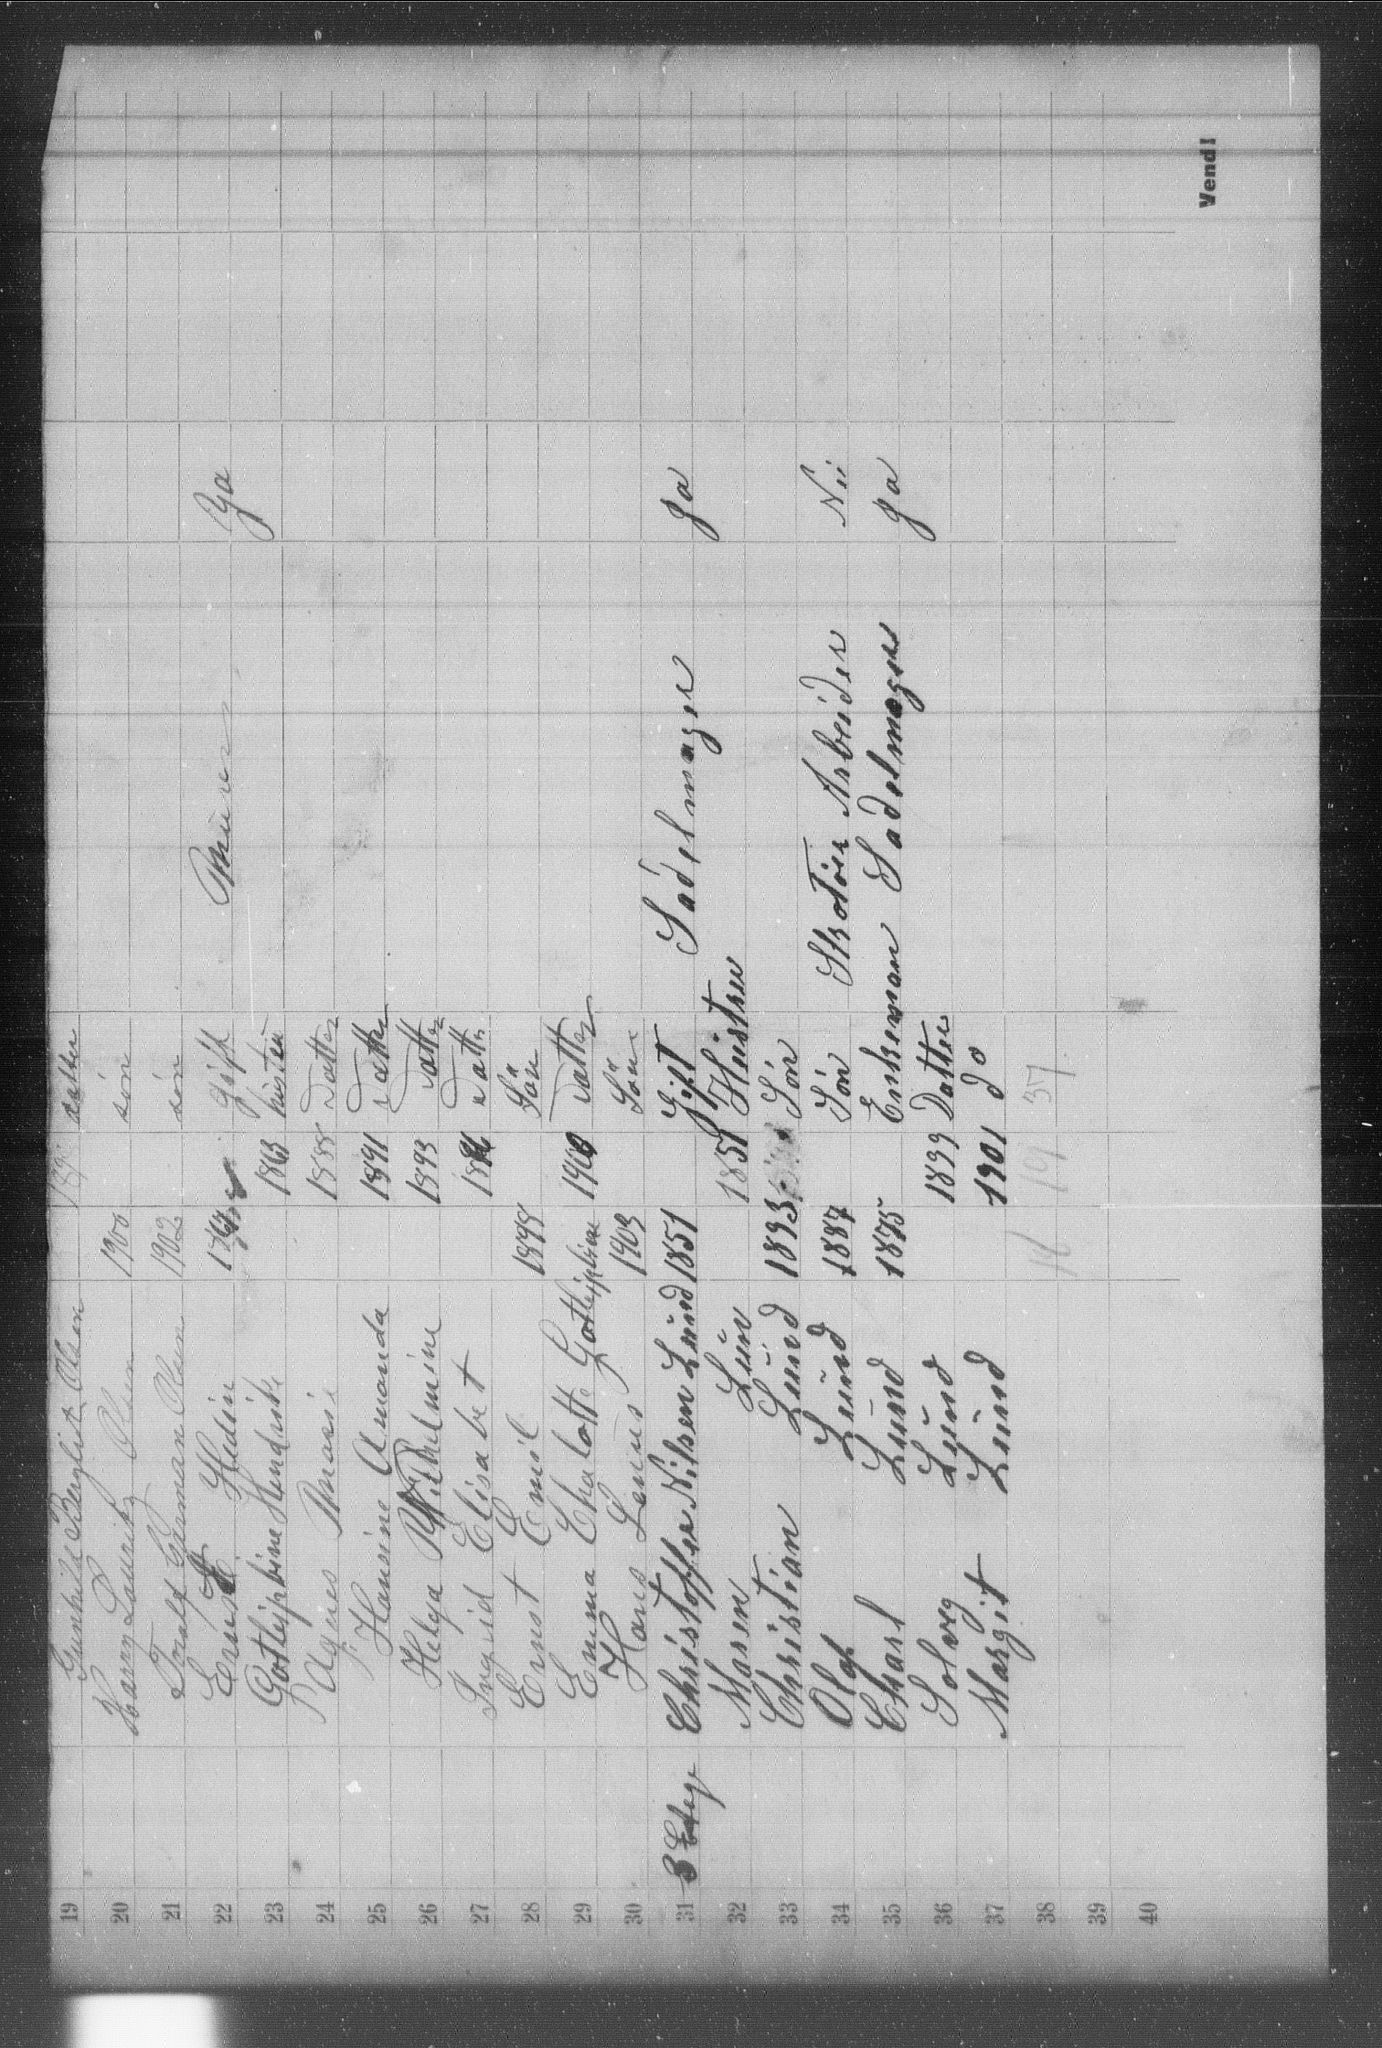 19 Gunhild Berglit Olsen 189 datter
20 Harry Lauritz Olsen 1900 sön
21 Trulf Germann Olsen 1902 sön
22 Ernst Hedin gift Murer Ja
23 Gotlipbine Hendrike 1863 hustru
24 Agnes Marie 1888 Datter
25 Hansine Amanda 1891 Datter
26 Helga Wilhelmine 1893 Datter
27 Ingrid Elisabet Datter
28 Ernst Emil 1898 Sön
29 Emma Chalotte Gotlipbine 1900 Datter
30 Hans Lenus 1903 Sön
31 3 Etage Christoffer Nilsen Lund 1851 Gift Sadelmager Ja
32 Maren Lun 1851 Hustru
33 Christian Lund 1893 Sön
34 Olaf Lund 1887 Sön Skotöi Arbeider Nii
35 Charl Lund 1875 Enkeman Sadelmager Ja
36 Solveg Lund 1899 Datter
37 Margit Lund 1901 do
38 18 19 37
39
40
Vend!